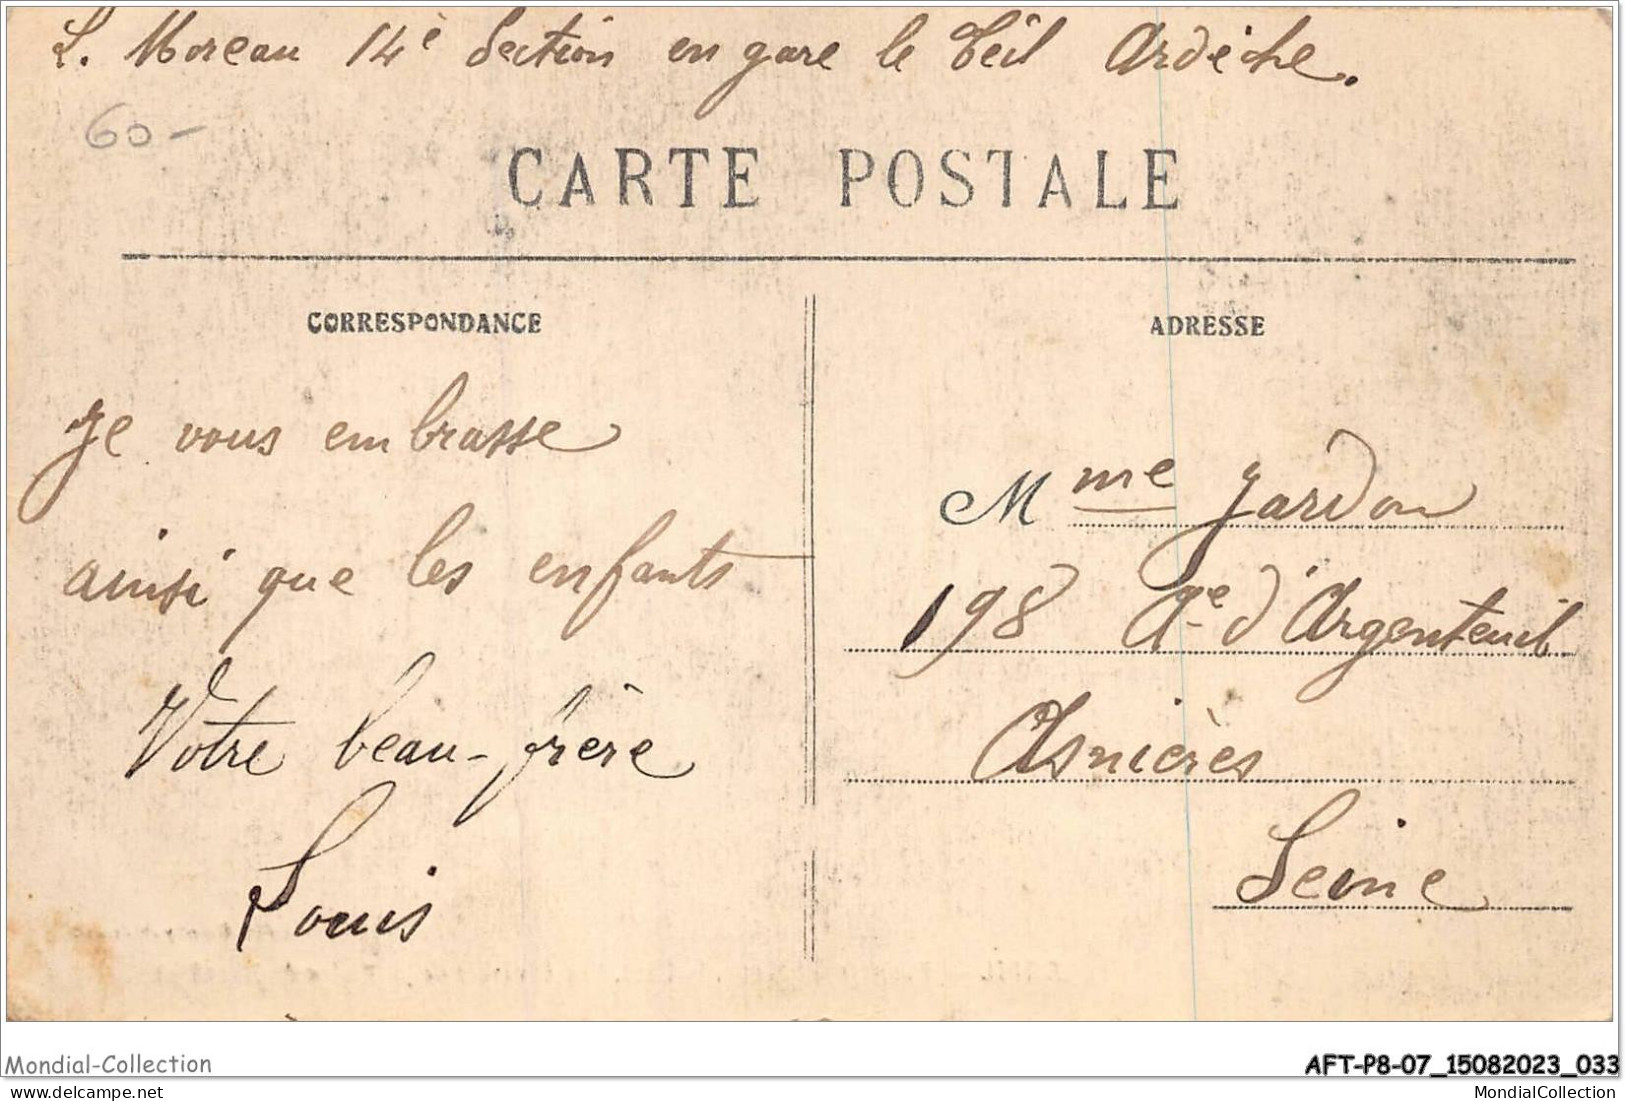 L. Moreau 14e Section en gare le Teil Ardèche.
60-
CARTE POSTALE
CORRESPONDANCE
ADRESSE
Je vous embrasse
ainsi que les enfants
Votre beau-frère
Louis
Mme Jardon
198 Ave d'Argenteuil
Asnières
Seine
Mondial-Collection
AFT-P8-07_15082023_033
www.delcampe.net
MondialCollection